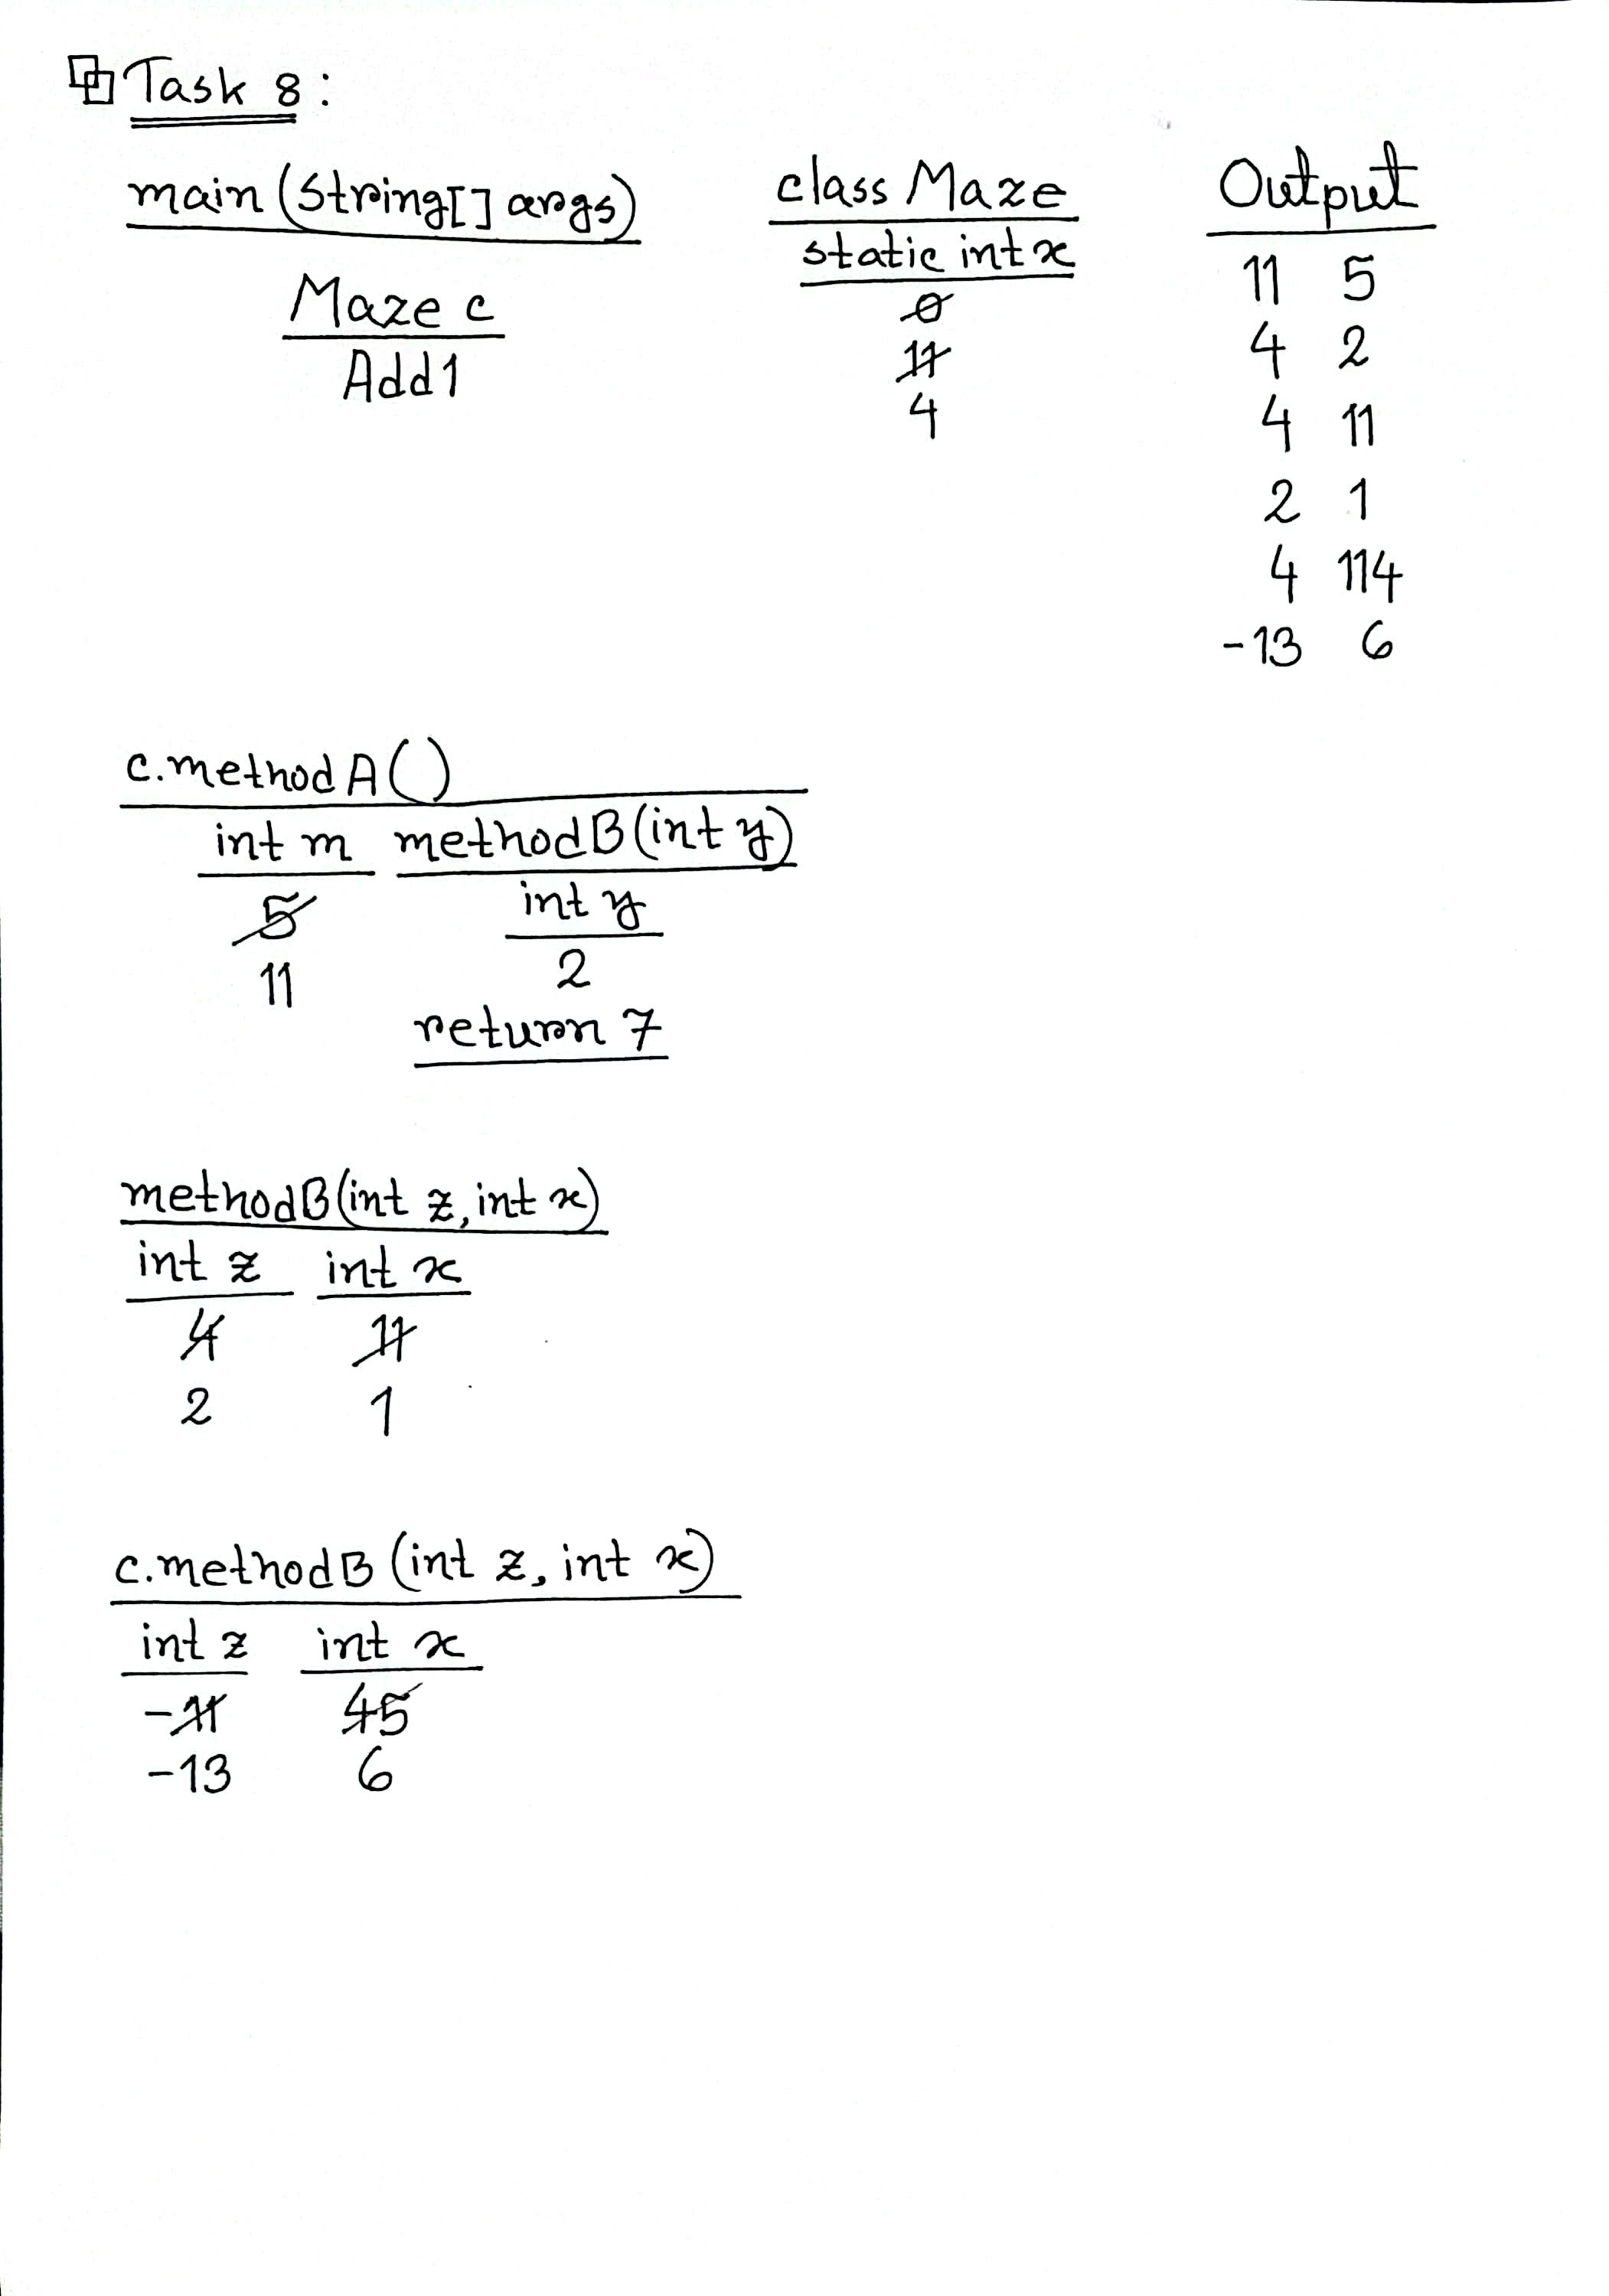 Task 8:
main (String[] args)
Maze c
Add1
class Maze
static int x
0
11
4
Output
11 5
4 2
4 11
2 1
4 114
-13 6
c.methodA()
int m methodB(int y)
5 int y
11 2
return 7
methodB(int z, int x)
int z int x
4 11
2 1
c.methodB (int z, int x)
int z int x
-11 45
-13 6